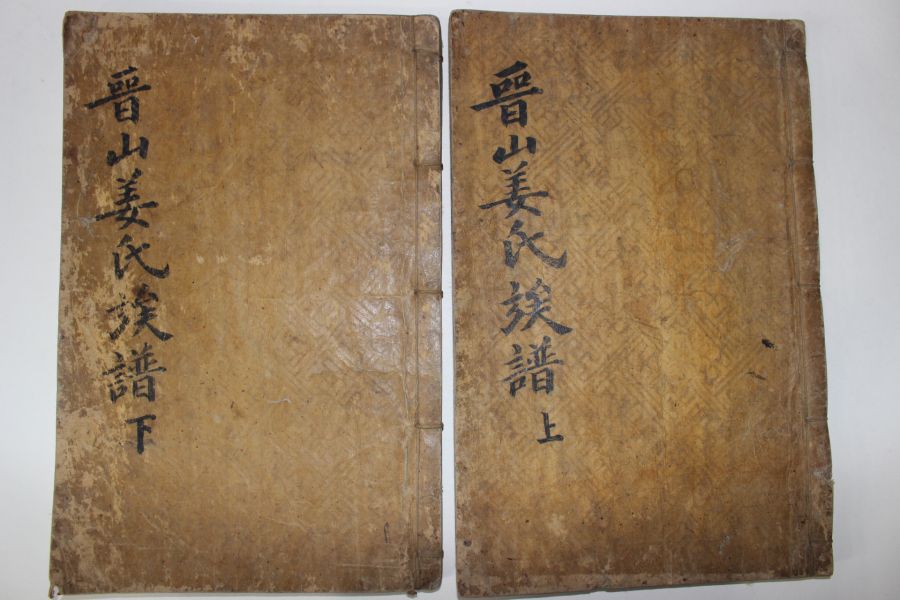 晉山姜氏族譜 上
晉山姜氏族譜 下